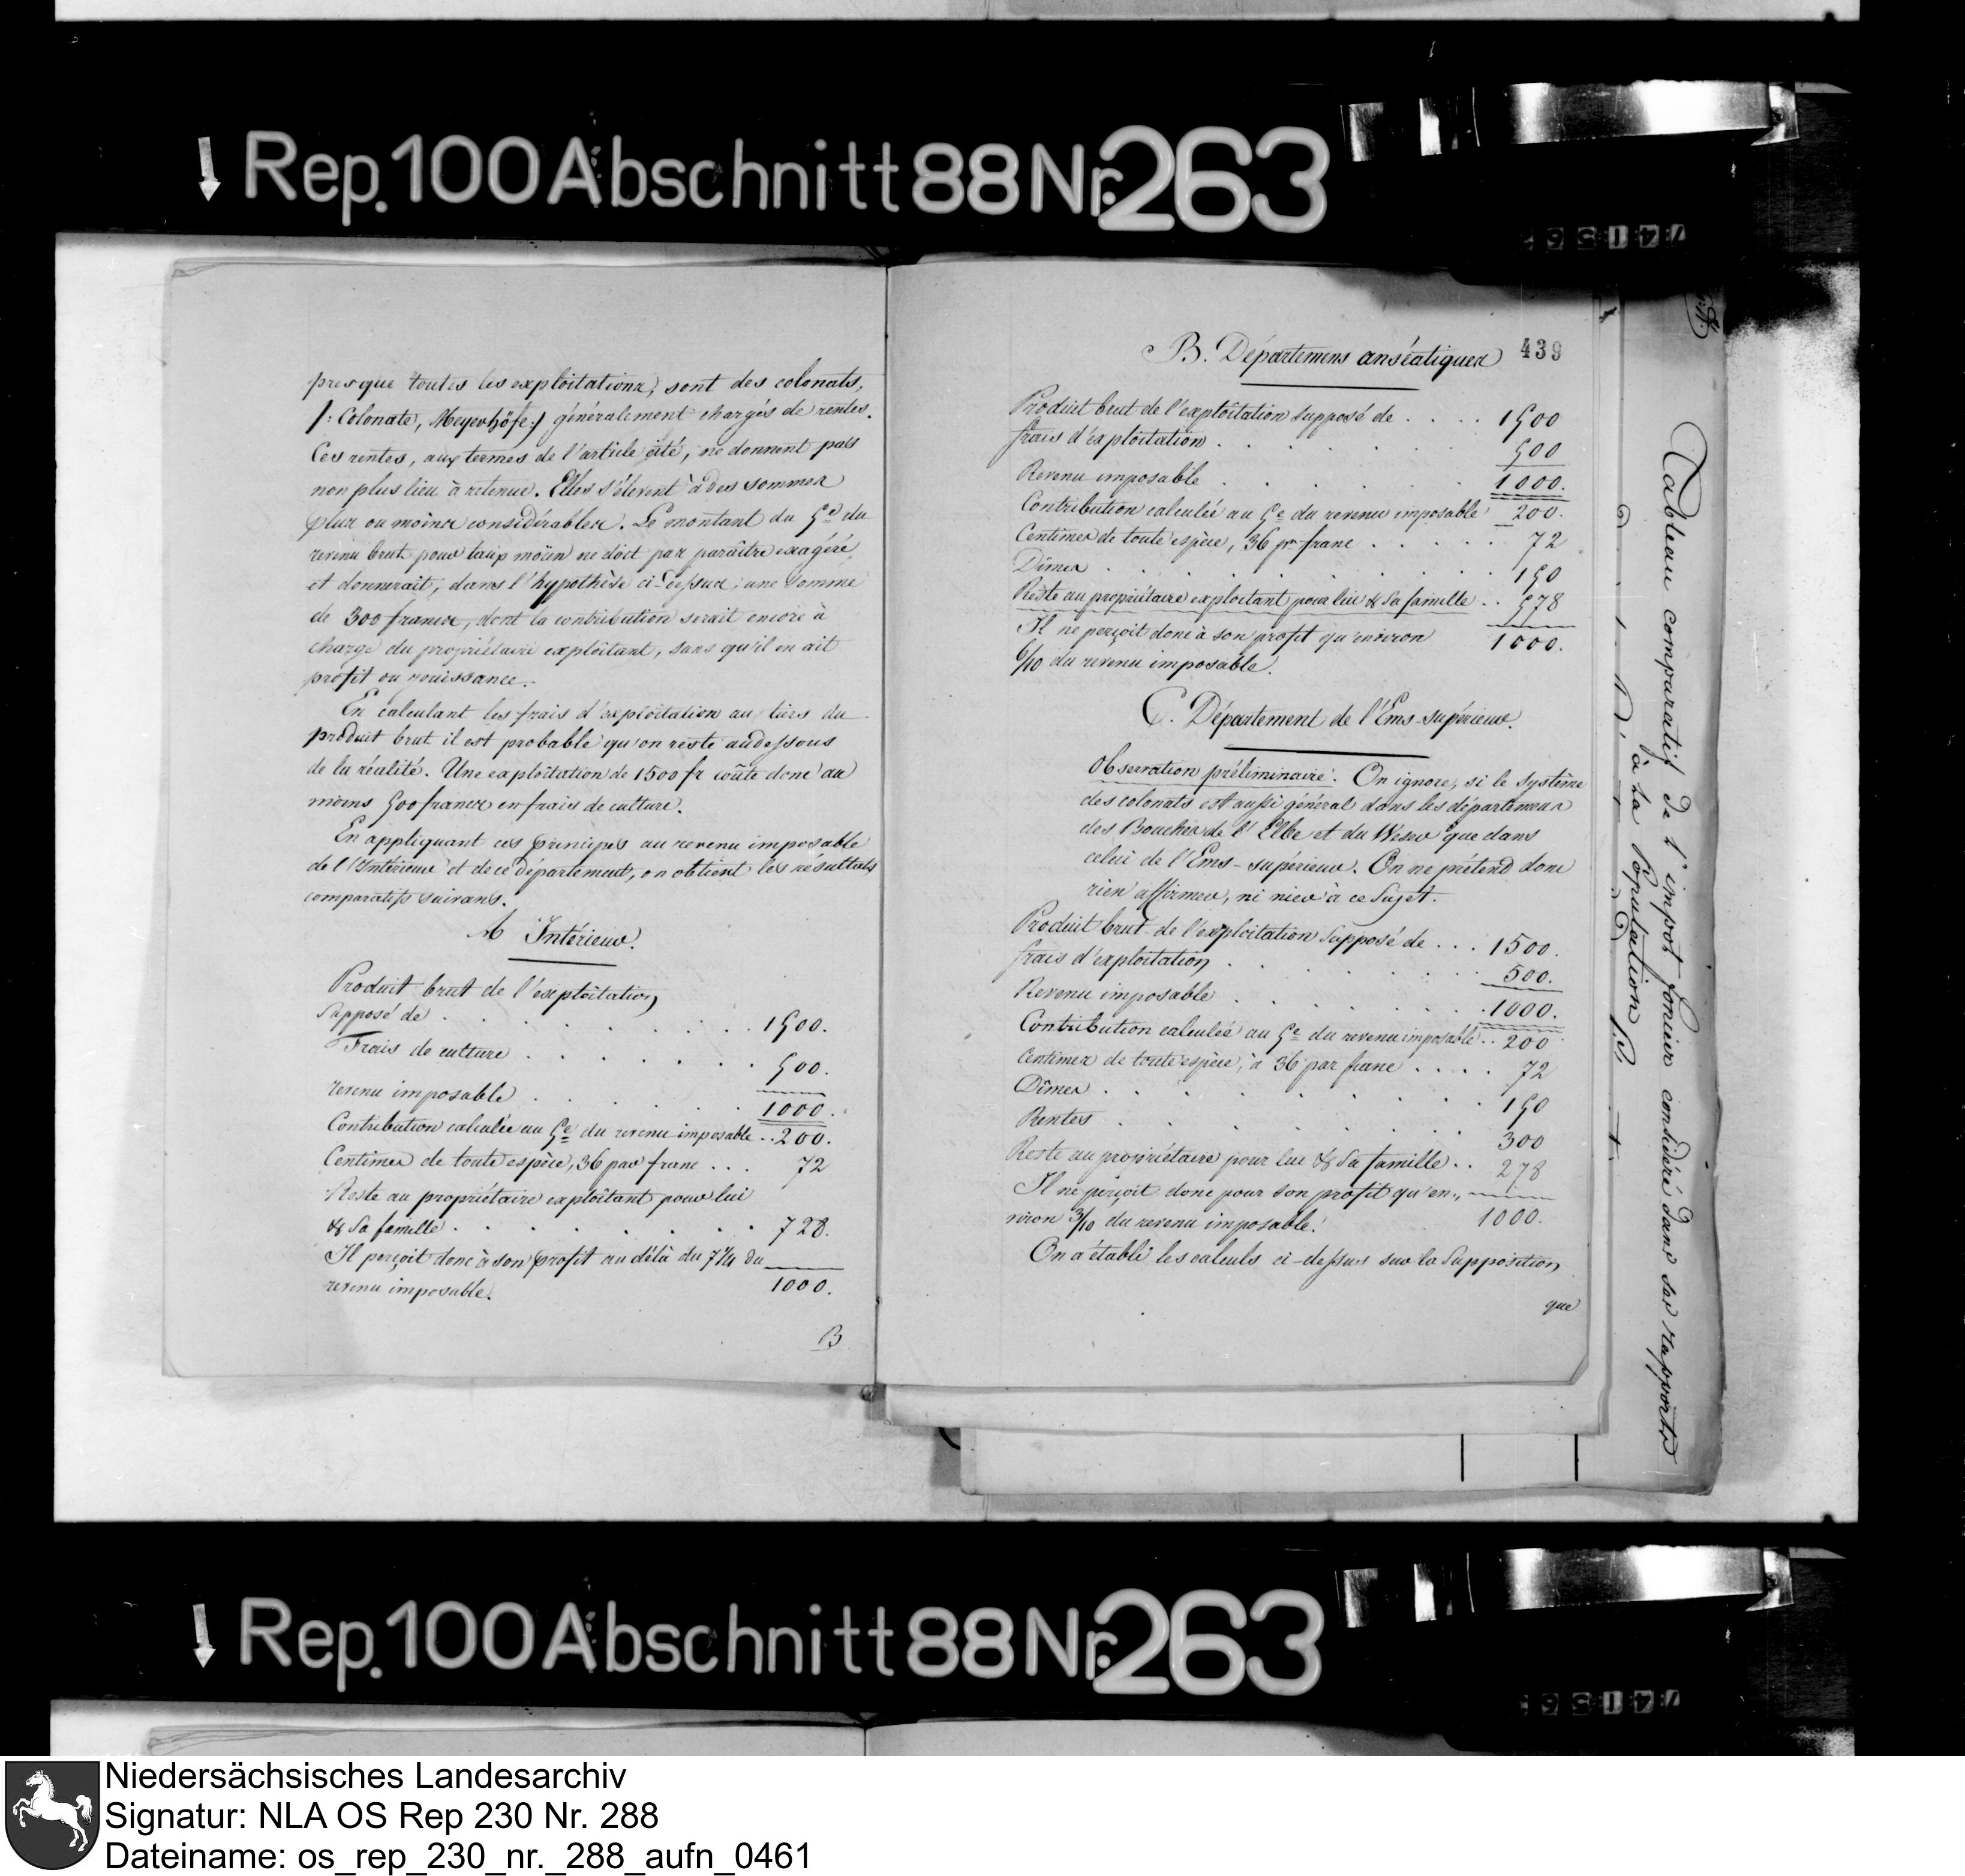 Rep. 100 Abschnitt 88 Nr. 263
presque toutes les exploitations, sont des colonats,
/: Colonate, Meyerhöfe :/ généralement chargés de rentes.
Ces rentes, aux termes de l'article cité, ne donnent pas
non plus lieu à retenue. Elles s'élevent à des sommes
plus ou moins considérables. Le montant du 5e du
revenu brut pour taux moïen ne doit pas paraître exagéré,
et donnerait, dans l'hypothèse ci-dessus, une somme
de 300 francs, dont la contribution serait encore à
charge du propriétaire exploitant, sans qu'il en ait
profit ou jouissance.
En calculant les frais d'exploitation au tiers du
produit brut il est probable qu'on reste audessous
de la réalité. Une exploitation de 1500 fr coûte donc au
moins 500 francs en frais de culture.
En appliquant ces principes au revenu imposable
de l'Intérieur et de ce département, on obtient les résultats
comparatifs suivans.
A Intérieur.
Produit brut de l'exploitation
supposé de . . . . . . . . . 1500.
Frais de culture . . . . . . 500.
revenu imposable . . . . . . 1000.
Contribution calculée au 5e du revenu imposable . . 200.
Centimes de toute espèce, 36 par franc . . . 72
Reste au propriétaire exploitant pour lui
& sa famille . . . . . . . . 728.
Il perçoit donc à son profit au délà du 7 1/4 du
revenu imposable. 1000.
B
B. Départemens anséatiques 439
Produit brut de l'exploitation supposé de . . . . 1500
frais d'exploitation . . . . . . 500
Revenu imposable . . . . . . 1000.
Contribution calculée au 5e du revenu imposable 200.
Centimes de toute espèce, 36 pr franc . . . . . 72
Dîmes . . . . . . . . . . 150
Reste au propriétaire exploitant pour lui & sa famille . . 578
Il ne perçoit donc à son profit qu'environ 1000.
6/10 du revenu imposable.
C. Département de l'Ems-supérieur.
Observation préliminaire. On ignore, si le système
des colonats est aussi général dans les départemens
des Bouches de l'Elbe et du Weser que dans
celui de l'Ems-supérieur. On ne prétend donc
rien affirmer, ni nier à ce sujet.
Produit brut de l'exploitation supposé de . . . 1500.
frais d'exploitation . . . . . . 500.
Revenu imposable . . . . . . 1000.
Contribution calculée au 5e du revenu imposable . . 200
Centimes de toute espèce, à 36 par franc . . . . 72
Dîmes . . . . . . . . 150
Rentes . . . . . . . 300
Reste au propriétaire pour lui & sa famille . . 278
Il ne perçoit donc pour son profit qu'en-
viron 3/10 du revenu imposable. 1000.
On a établi les calculs ci-dessus sur la supposition
que
Tableau comparatif de l'impot foncier considéré dans ses rapports
à la Population
Rep. 100 Abschnitt 88 Nr. 263
Niedersächsisches Landesarchiv
Signatur: NLA OS Rep 230 Nr. 288
Dateiname: os_rep_230_nr._288_aufn_0461